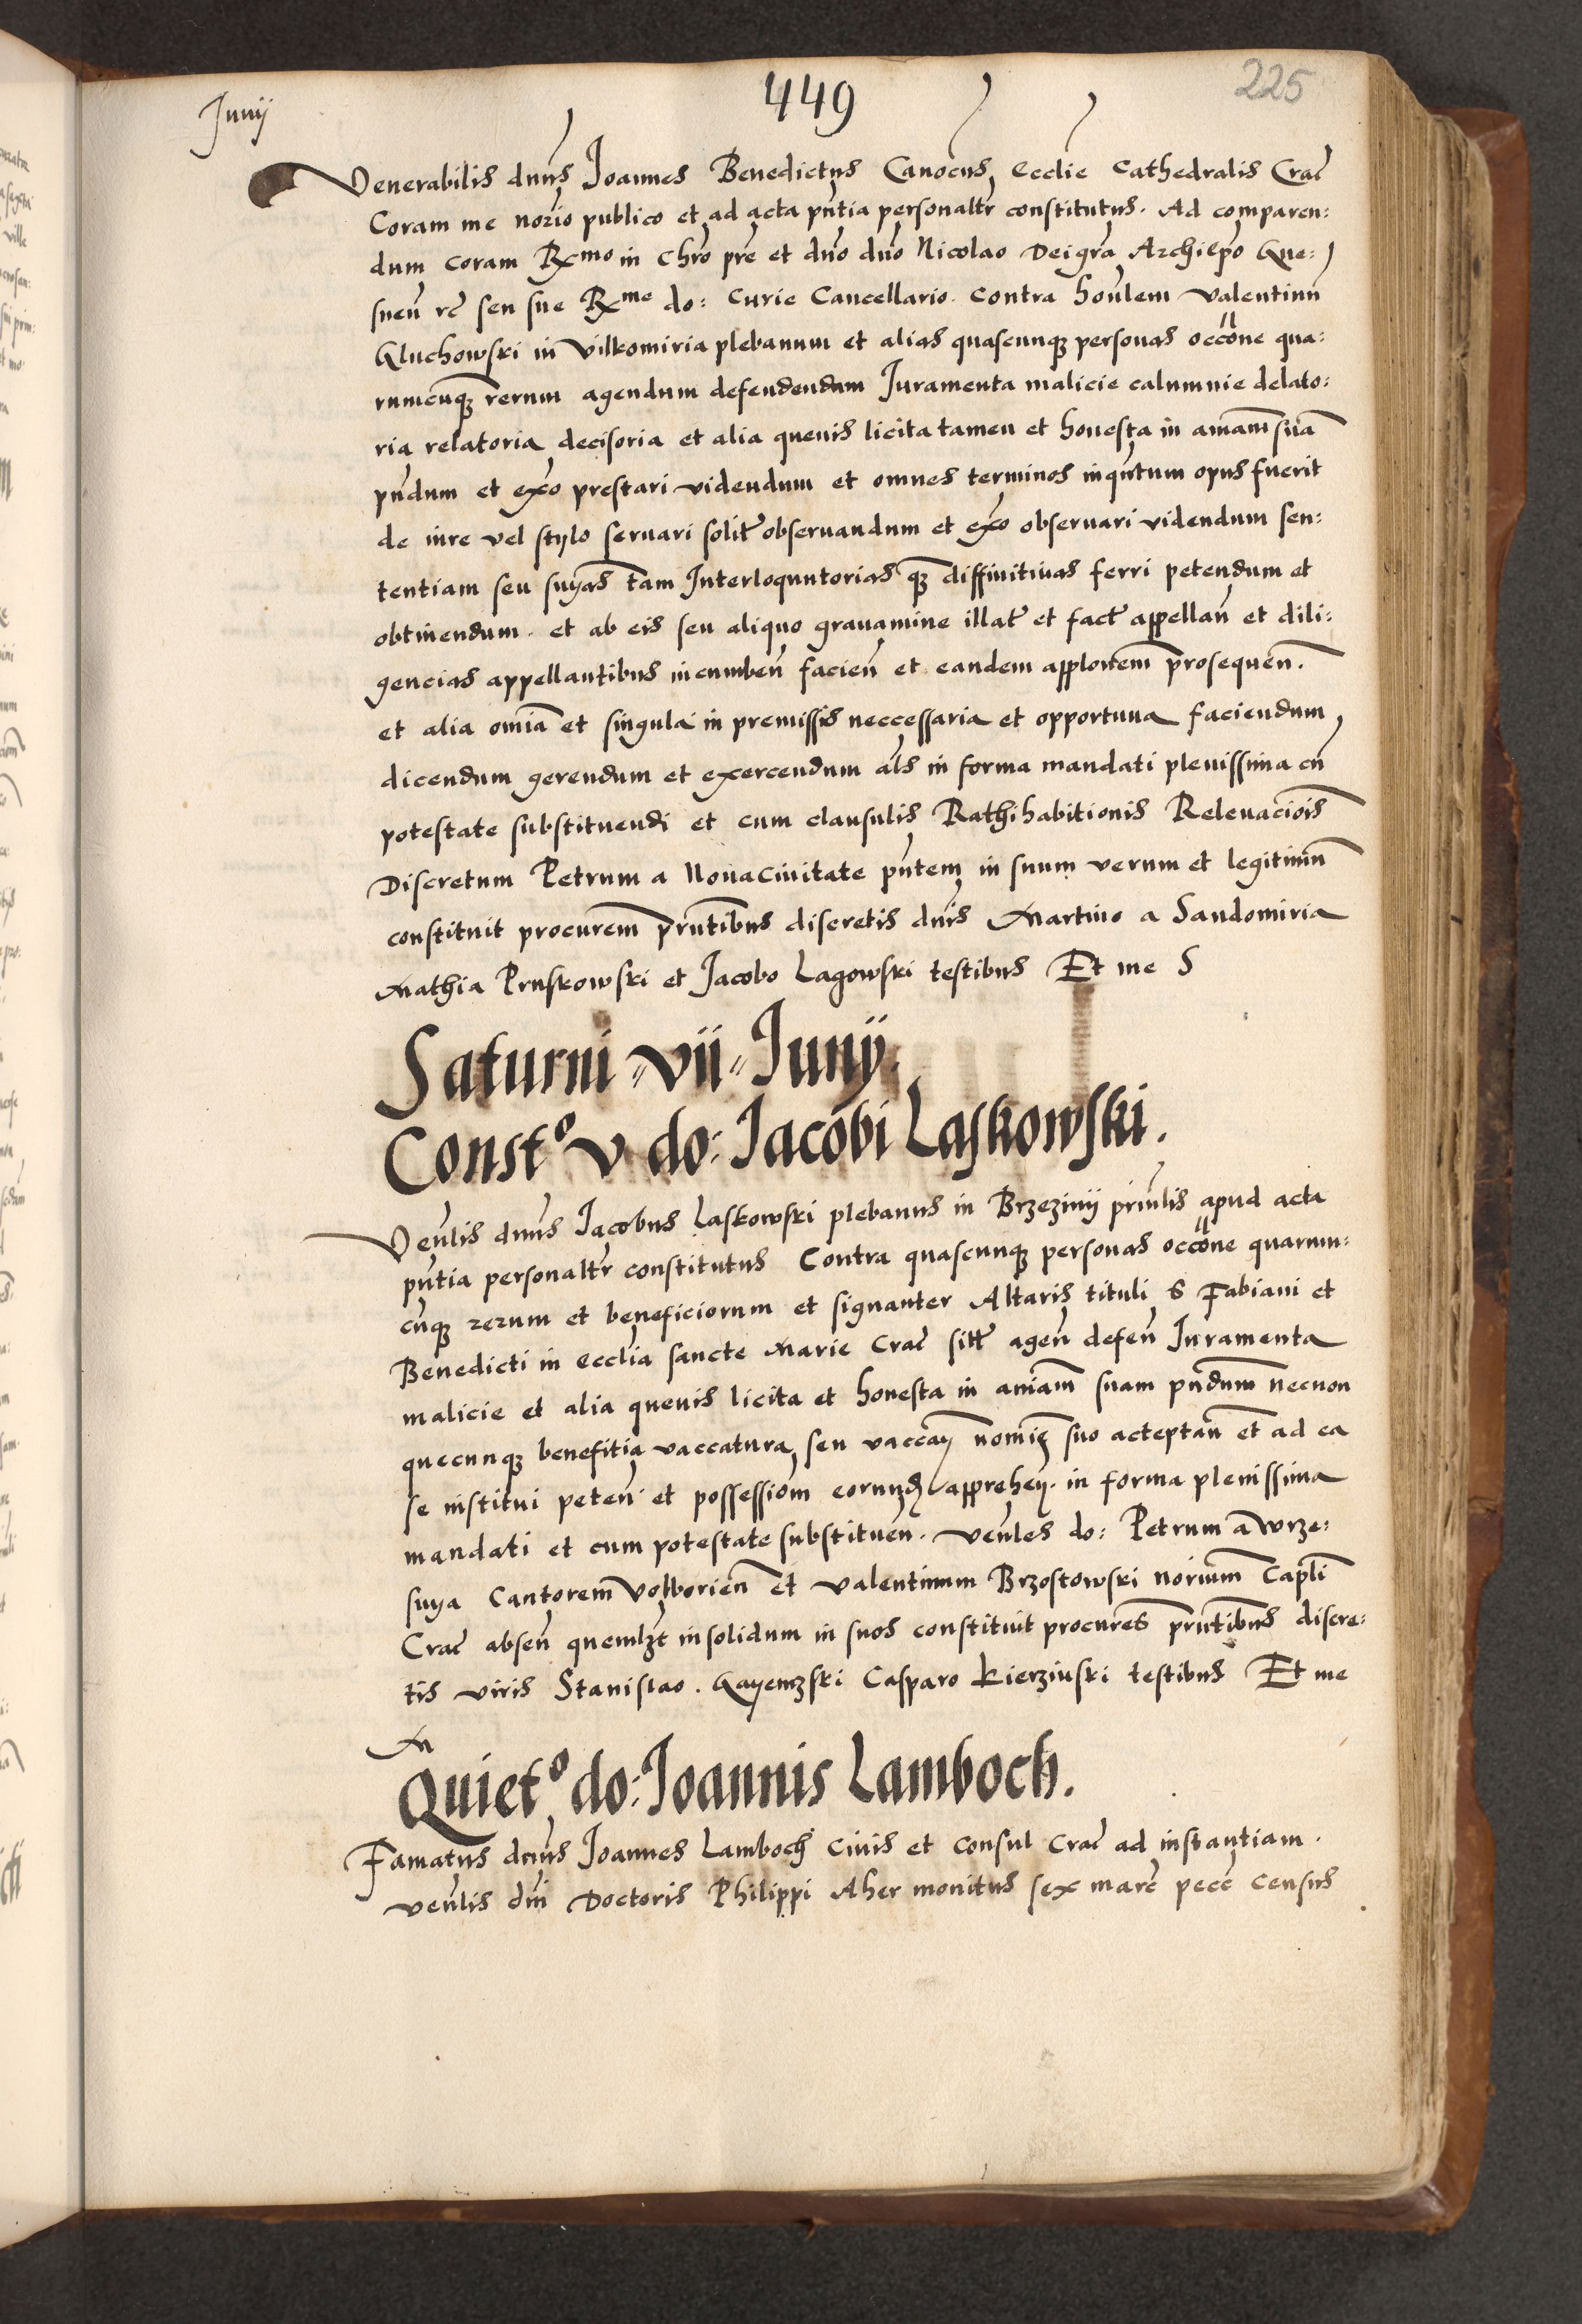 449
225
Junij
Venerabilis dnus Joannes Benedictus Canocus Ecclie Cathedralis Crac
Coram me norio publico et ad acta pntia personaltr constitutus. Ad comparen:
dum coram Rmo in Chro pre et dno dno Nicolao Dei gra Archiepo Gne:
snen rc seu sue Rme do: Curie Cancellario. contra honlem Valentinu
Gluchowski in Vilkomiria plebanum et alias quascunq personas occone qua:
rumcunq rerum agendum defendendum Juramenta malicie calumnie delato:
ria relatoria decisoria et alia quevis licita tamen et honesta in amam sua
pndum et exo prestari videndum et omnes terminos inqntum opus fuerit
de iure vel stylo servari solit observandum et exo observari videndum sen:
tentiam seu snyas tam Interloquutorias qz diffinitivas ferri petendum et
obtinendum. et ab eis seu aliquo gravamine illat et fact appellan et dili:
gencias appellantibus incumben facien et eandem applonem prosequen.
et alia omia et singula in premissis neccessaria et opportuna faciendum
dicendum gerendum et exercendum als in forma mandati plenissima cu
potestate substituendi et cum clausulis Rathihabitionis Relevaciois
Discretum Petrum a Nova Civitate pntem in suum verum et legitimu
constituit procurem prntibus discretis dnis Martino a Sandomiria
Mathia Pruskowski et Jacobo Lagowski testibus Et me S
Saturni vii Junij.
Consto v do: Jacobi Laskowski.
Venlis dnus Jacobus Laskowski plebanus in Brzezinij prinlis apud acta
pntia personaltr constitutus Contra quascunq personas occone quarum:
cuq rerum et beneficiorum et signanter Altaris tituli S Fabiani et
Benedicti in ecclia sancte Marie Crac sitt agen defen Juramenta
malicie et alia quevis licita et honesta in aniam suam pndum necnon
quecunqz benefitia vaccatura seu vaccan nomie suo acteptan et ad ea
se institui peten et possessiom eorund apprehen. in forma plenissima
mandati et cum potestate substituen. venles do: Petrum a Wrze:
snya Cantorem Volborien et Valentinum Brzostowski norium Capli
Crac absen quemlzt insolidum in suos constituit procures prntibus discre:
tis viris Stanislao. Gayenzski Casparo Kierzinski testibus Et me
M
Quieto do: Joannis Lamboch.
Famatus dnus Joannes Lamboch Civis et Consul Crac ad instantiam.
venlis dni Doctoris Philippi Aher monitus sex marc pecc census